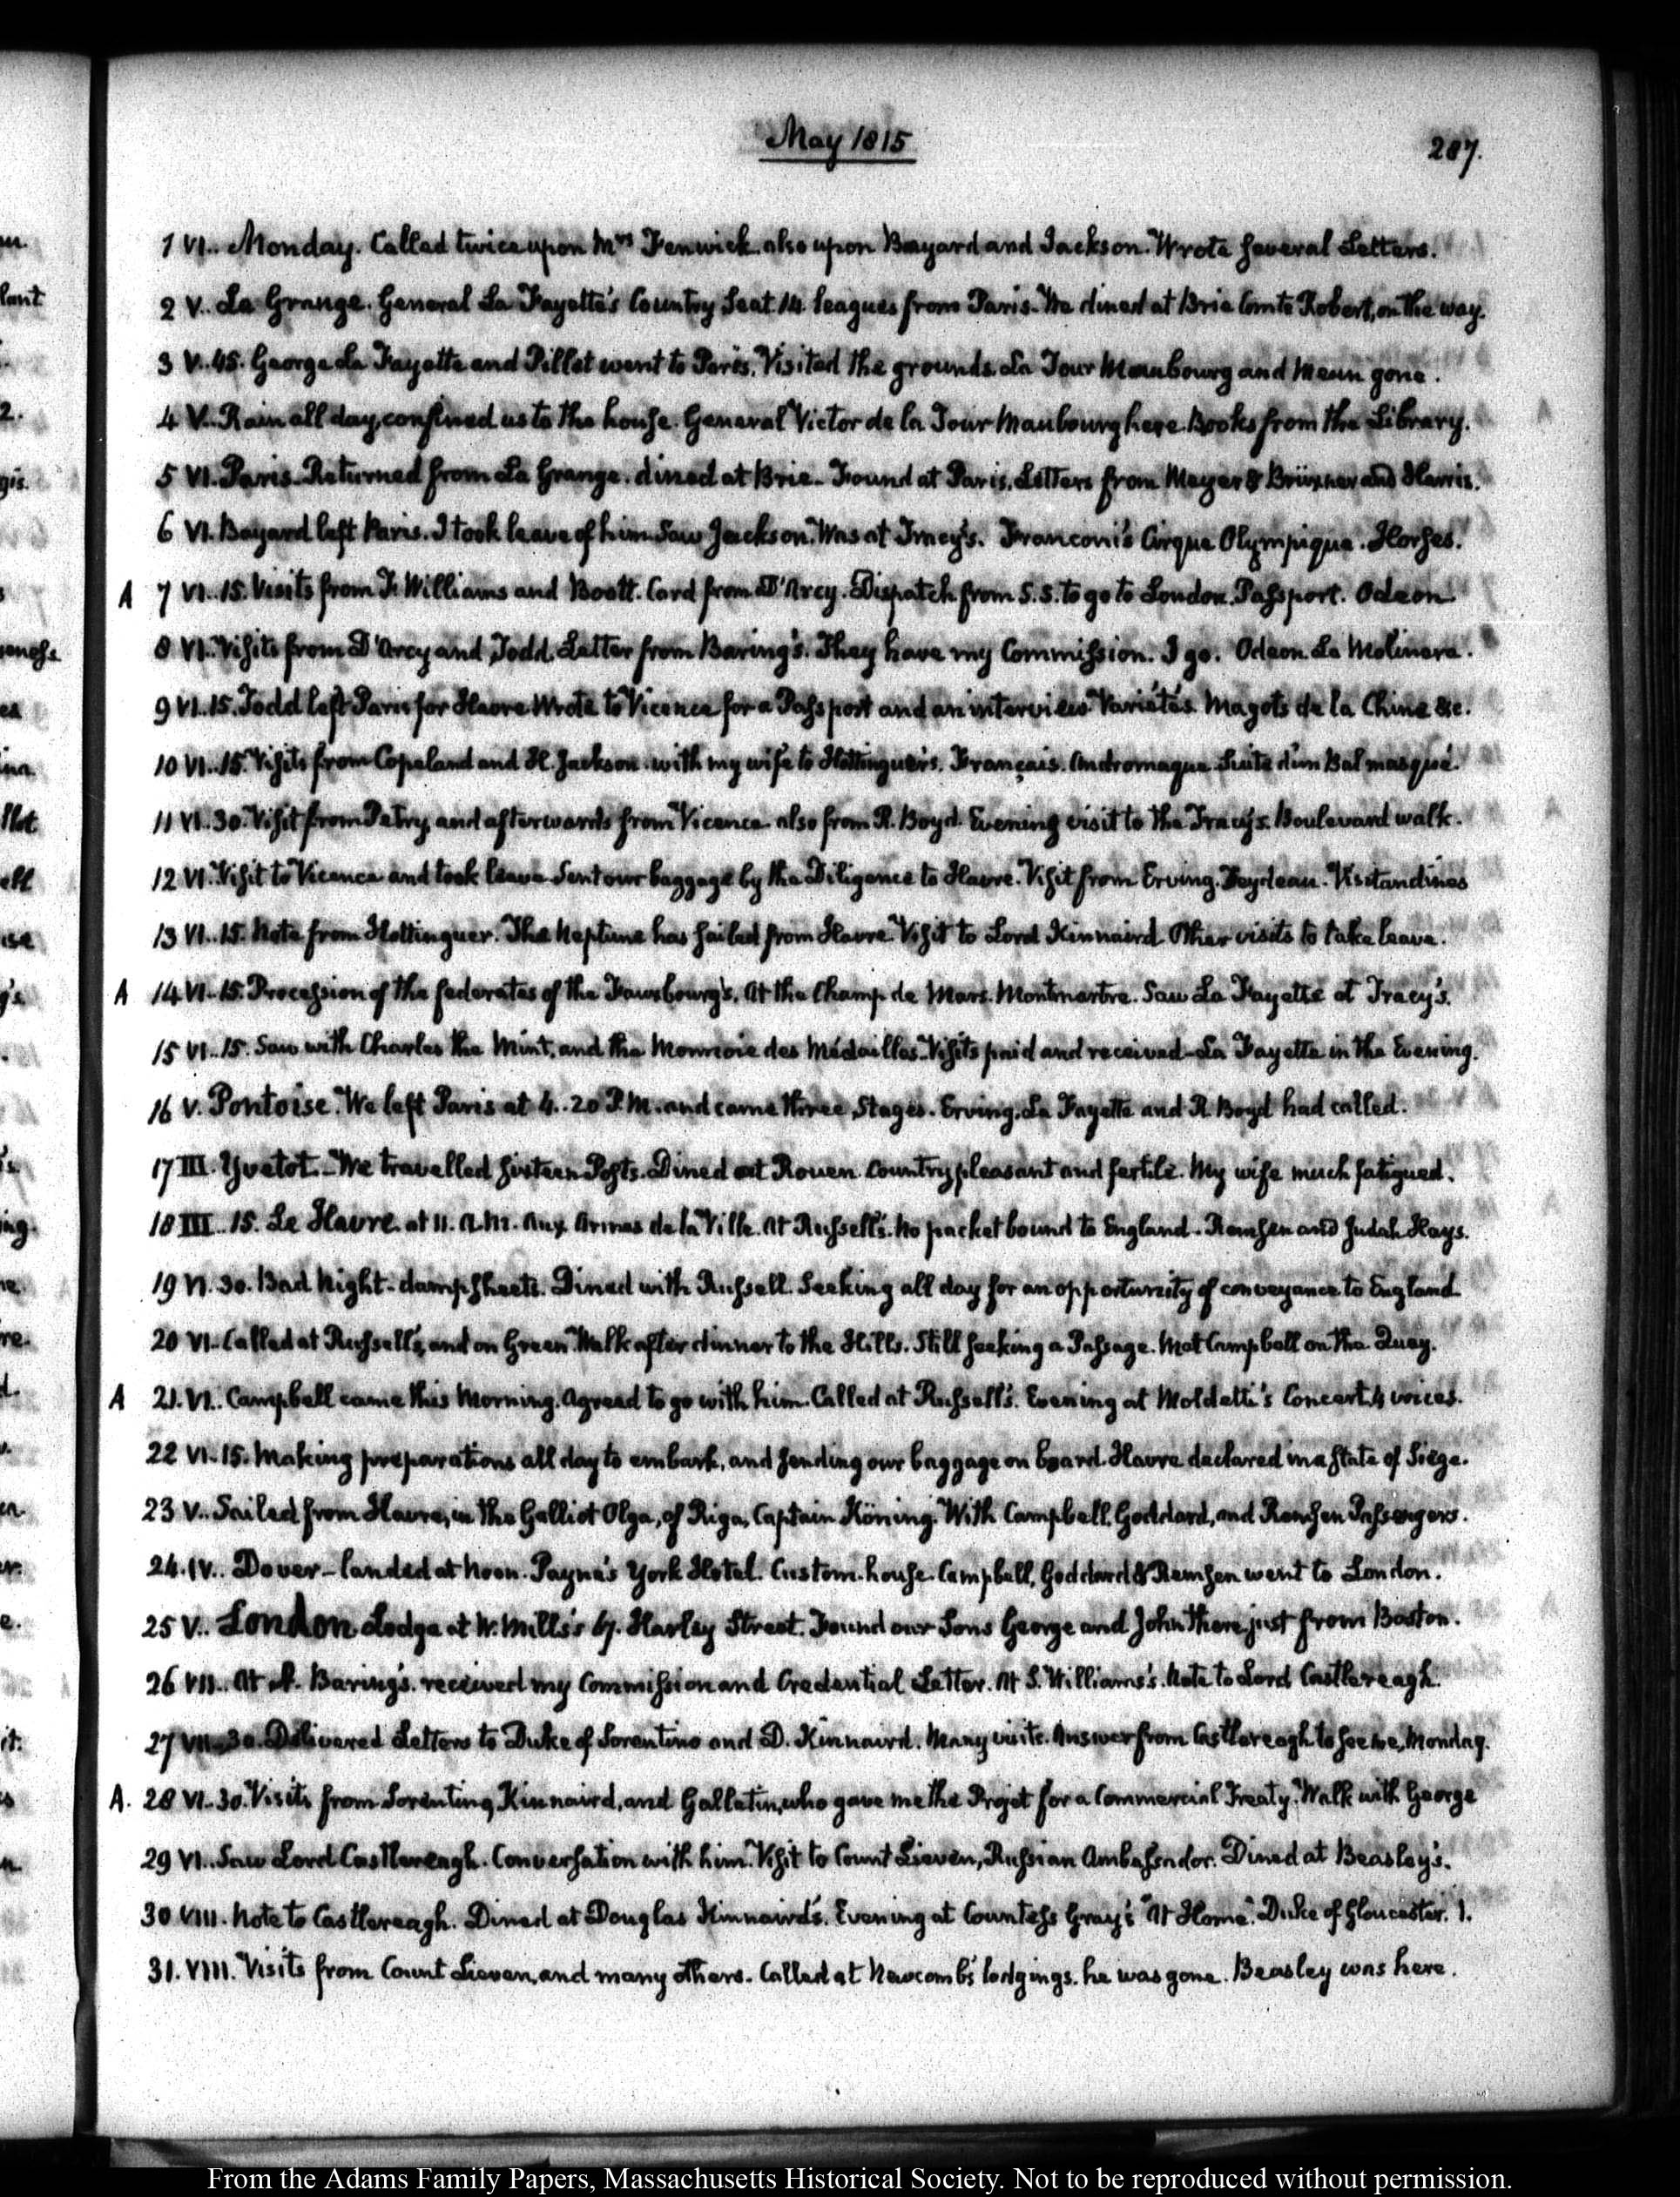 May 1815
287.
1 VI.. Monday. Called twice upon Mrs Fenwick. also upon Bayard and Jackson. Wrote several Letters.
2 V.. La Grange. General La Fayette's Country Seat. 14 leagues from Paris. We dined at Brie Comte Robert, on the way.
3 V..45. George La Fayette and Pillet went to Paris. Visited the grounds. La Tour Maubourg and Meun gone.
4 V.. Rain all day, confined us to the house. General Victor de la Tour Maubourg here. Books from the Library.
5 VI. Paris. Returned from La Grange. dined at Brie. Found at Paris, Letters from Meyer & Brüxner and Harris.
6 VI. Bayard left Paris. I took leave of him. Saw Jackson. Was at Tracy's. Franconi's Cirque Olympique. Horses.
A 7 VI..15. Visits from T. Williams and Boott. Card from D'Arcy. Dispatch from S.S. to go to London. Passport. Odeon
8 VI.. Visits from D'Arcy and Todd. Letter from Baring's. They have my Commission. I go. Odeon. La Molinara.
9 VI..15. Todd left Paris for Havre. Wrote to Vicence for a Passport and an interview. Variétés. Magots de la Chine &c.
10 VI..15. Visits from Copeland and H. Jackson. with my wife to Hottinguer's. Français. Andromaque. Suite d'un Bal masqué.
11 VI..30. Visit from Petry, and afterwards from Vicence. also from R. Boyd. Evening visit to the Tracy's. Boulevard walk.
12 VI. Visit to Vicence and took leave. Sent our baggage by the Diligence to Havre. Visit from Erving. Feydeau. Visitandines
13 VI..15. Note from Hottinguer. The Neptune has sailed from Havre. Visit to Lord Kinnaird. Other visits to take leave.
A 14 VI..15. Procession of the federates of the Fauxbourg's. At the Champ de Mars. Montmartre. Saw La Fayette at Tracy's.
15 VI..15. Saw with Charles the Mint, and the Monnoie des Médailles. Visits paid and received. La Fayette in the Evening.
16 V. Pontoise. We left Paris at 4..20 P.M. and came three Stages. Erving, La Fayette and R. Boyd had called.
17 III. Yvetot. We travelled sixteen Posts. Dined at Rouen. Country pleasant and fertile. My wife much fatigued.
18 III..15. Le Havre. at 11. A.M. Aux Armes de la Ville. At Russell's. No packet bound to England. Remsen and Judah Hays.
19 VI..30. Bad Night. damp sheets. Dined with Russell. Seeking all day for an opportunity of conveyance to England
20 VI.. Called at Russell's, and on Green. Walk after dinner to the Hills. Still seeking a Passage. Met Campbell on the Quay.
A 21. VI.. Campbell came this Morning. Agreed to go with him. Called at Russell's. Evening at Moldetti's Concert. 4 voices.
22 VI..15. Making preparations all day to embark, and sending our baggage on board. Havre declared in a State of Siege.
23 V.. Sailed from Havre, in the Galliot Olga, of Riga, Captain Köning. With Campbell, Goddard, and Remsen Passengers.
24. IV.. Dover – landed at Noon. Payne's York Hotel. Custom-house. Campbell, Goddard & Remsen went to London.
25 V.. London Lodge at W. Mills's 67. Harley Street. Found our Sons George and John there, just from Boston.
26 VII.. At A. Baring's. received my Commission and Credential Letter. At S. Williams's. Note to Lord Castlereagh.
27 VII..30. Delivered Letters to Duke of Sorentino and D. Kinnaird. Many visits. Answer from Castlereagh to see me, Monday.
A. 28 VI..30. Visits from Sorentino, Kinnaird, and Gallatin, who gave me the Projet for a Commercial Treaty. Walk with George
29 VI.. Saw Lord Castlereagh. Conversation with him. Visit to Count Lieven, Russian Ambassador. Dined at Beasley's.
30 VIII. Note to Castlereagh. Dined at Douglas Kinnaird's. Evening at Countess Gray's "At Home." Duke of Gloucester. 1.
31. VIII. Visits from Count Lieven, and many others. Called at Newcomb's lodgings. he was gone. Beasley was here.
From the Adams Family Papers, Massachusetts Historical Society. Not to be reproduced without permission.